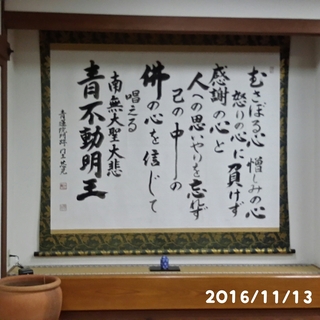 むさぼる心 憎しみの心
怒りの心に負けず
感謝の心と
人への思いやりを忘れず
己の中の
佛の心を信じて
唱える
南無大聖大悲
青不動明王
青蓮院門跡門主
2016/11/13